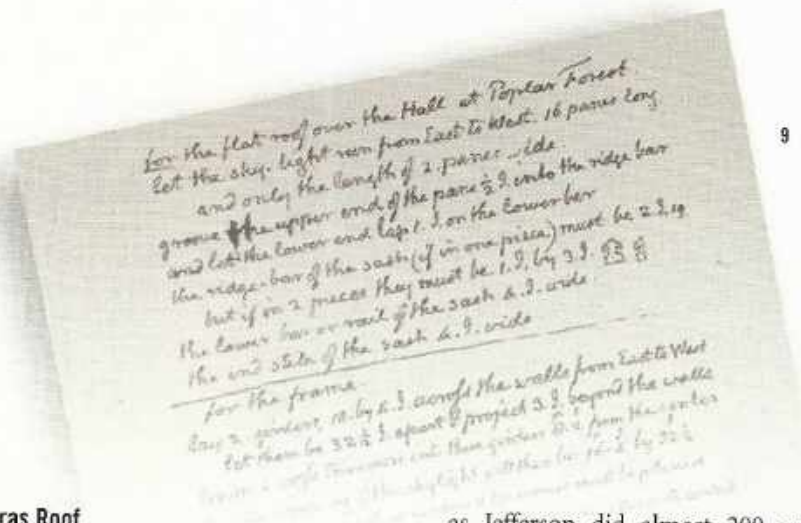 9
for the flat roof over the Hall at Poplar Forest
let the sky-light run from East to West. 16 panes long
and only the length of 2. panes wide
groove the upper end of the pane ½ I. into the ridge bar
and let the lower end lap 1. I. on the lower bar
the ridge-bar of the sash (if in one piece) must be 2 I. sq
but if in 2 pieces they must be 1. I. by 3. I.
the lower bar or rail of the sash 4. I. wide
the end stile of the sash 4. I. wide
for the frame.
2 girders, 10. by 4. I. across the walls from East to West
let them be 32 ½ I. apart & project 3 I. beyond the walls
girders from the center
the skylight will then be by 32 ½
must be
ras Roof
as Jefferson did almost 200